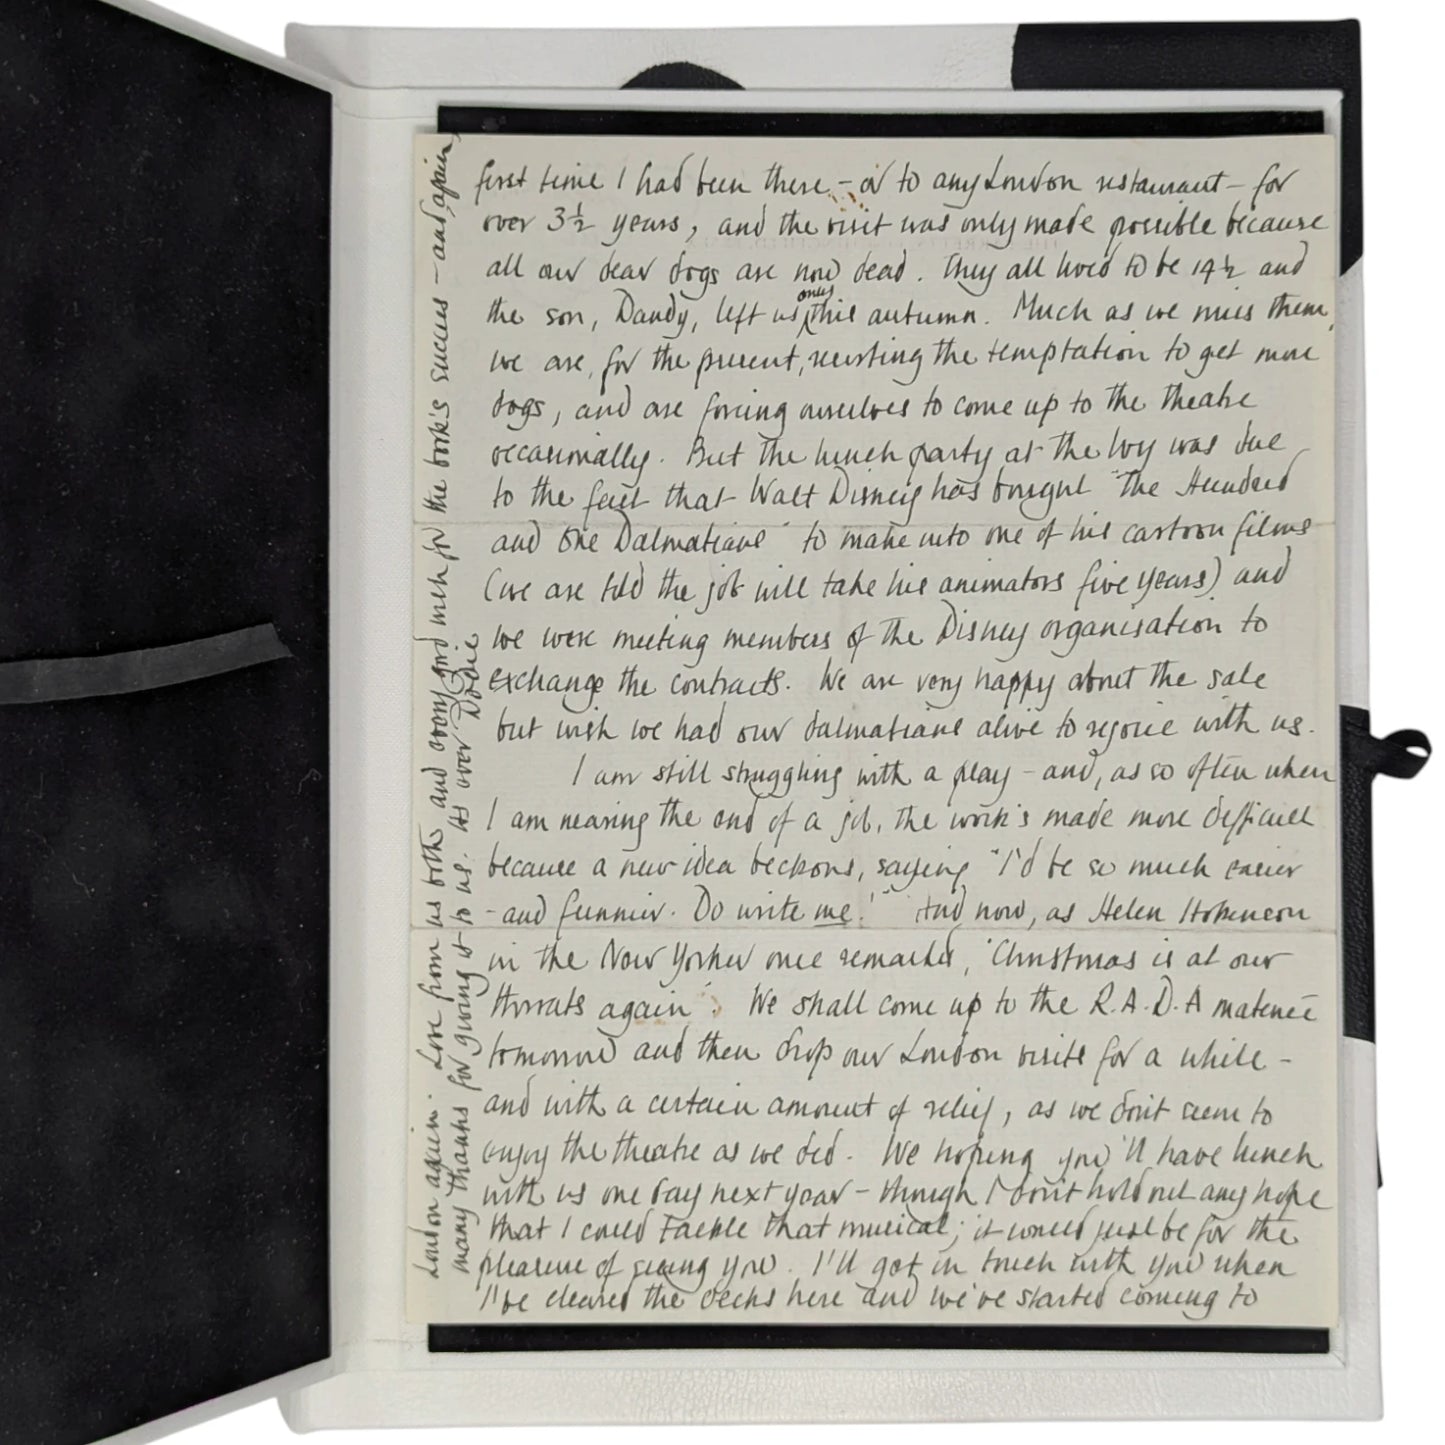 first time I had been there - or to any London restaurant - for
over 3½ years, and the visit was only made possible because
all our dear dogs are now dead. They all lived to be 14½ and
the son, Dandy, left us only this autumn. Much as we miss them,
we are, for the present, resisting the temptation to get more
dogs, and are forcing ourselves to come up to the theatre
occasionally. But the lunch party at the Ivy was due
to the fact that Walt Disney has bought "The Hundred
and One Dalmatians" to make into one of his cartoon films
(we are told the job will take his animators five years) and
we were meeting members of the Disney organisation to
exchange the contracts. We are very happy about the sale
but wish we had our dalmatians alive to rejoice with us.
I am still struggling with a play - and, as so often when
I am nearing the end of a job, the work's made more difficult
because a new idea beckons, saying "I'd be so much easier
- and funnier. Do write me!" And now, as Helen Hokinson
in the New Yorker once remarked, 'Christmas is at our
throats again'. We shall come up to the R.A.D.A matinée
tomorrow and then drop our London visits for a while -
and with a certain amount of relief, as we don't seem to
enjoy the theatre as we did. We hoping you'll have lunch
with us one day next year - though I don't hold out any hope
that I could tackle that musical; it would just be for the
pleasure of seeing you. I'll get in touch with you when
I've cleared the decks here and we've started coming to
London again. Love from us both, and every good wish for the book's success - and, again,
many thanks for giving it to us. As ever Dodie